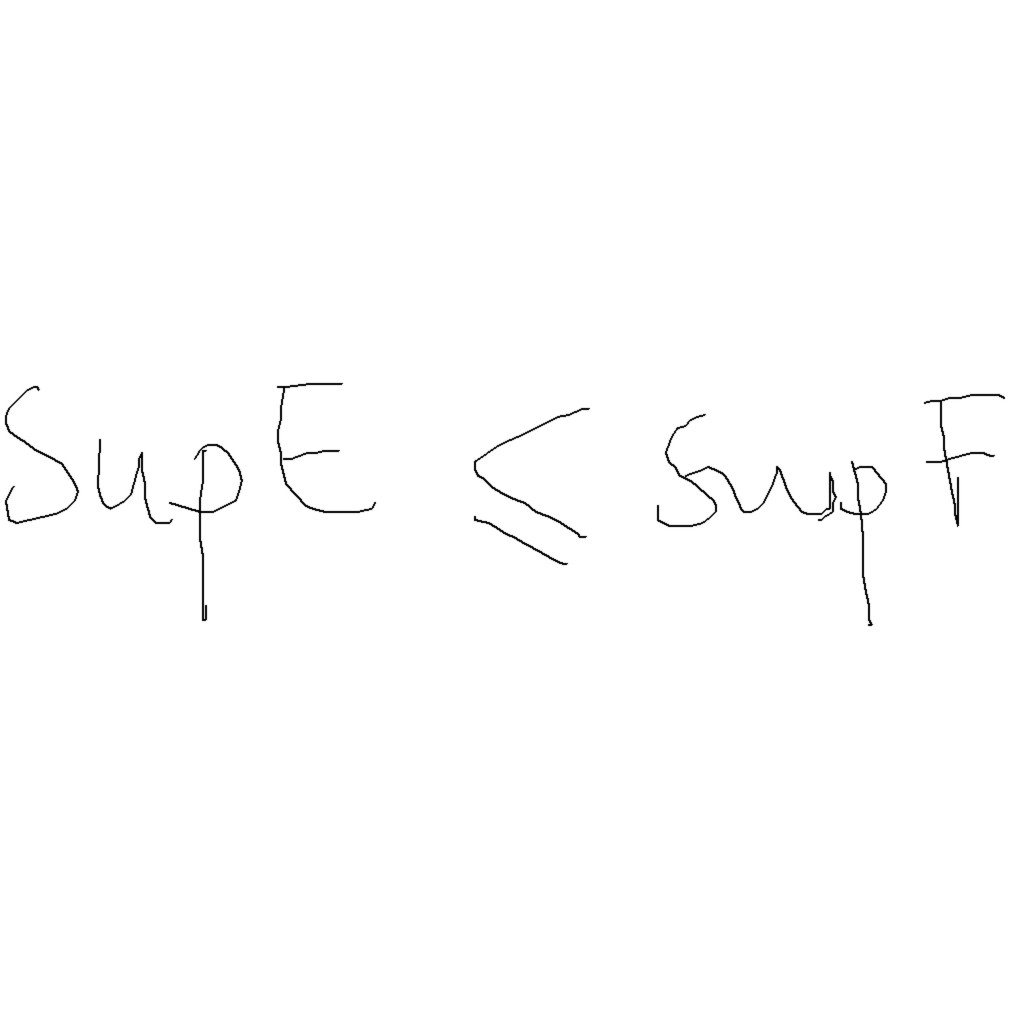 Sup E ⩽ sup F